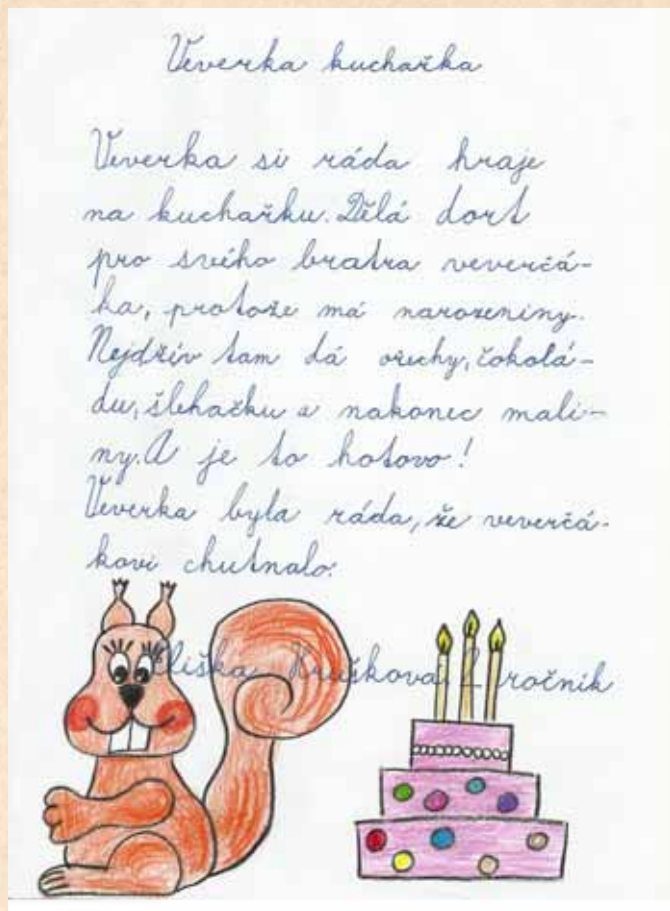 Veverka kuchařka
Veverka si ráda hraje
na kuchařku. Dělá dort
pro svého bratra veverčá-
ka, protože má narozeniny.
Nejdřív tam dá ořechy, čokolá-
du, šlehačku a nakonec mali-
ny. A je to hotovo!
Veverka byla ráda, že veverčá-
kovi chutnalo.
Eliška Hrušková ročník